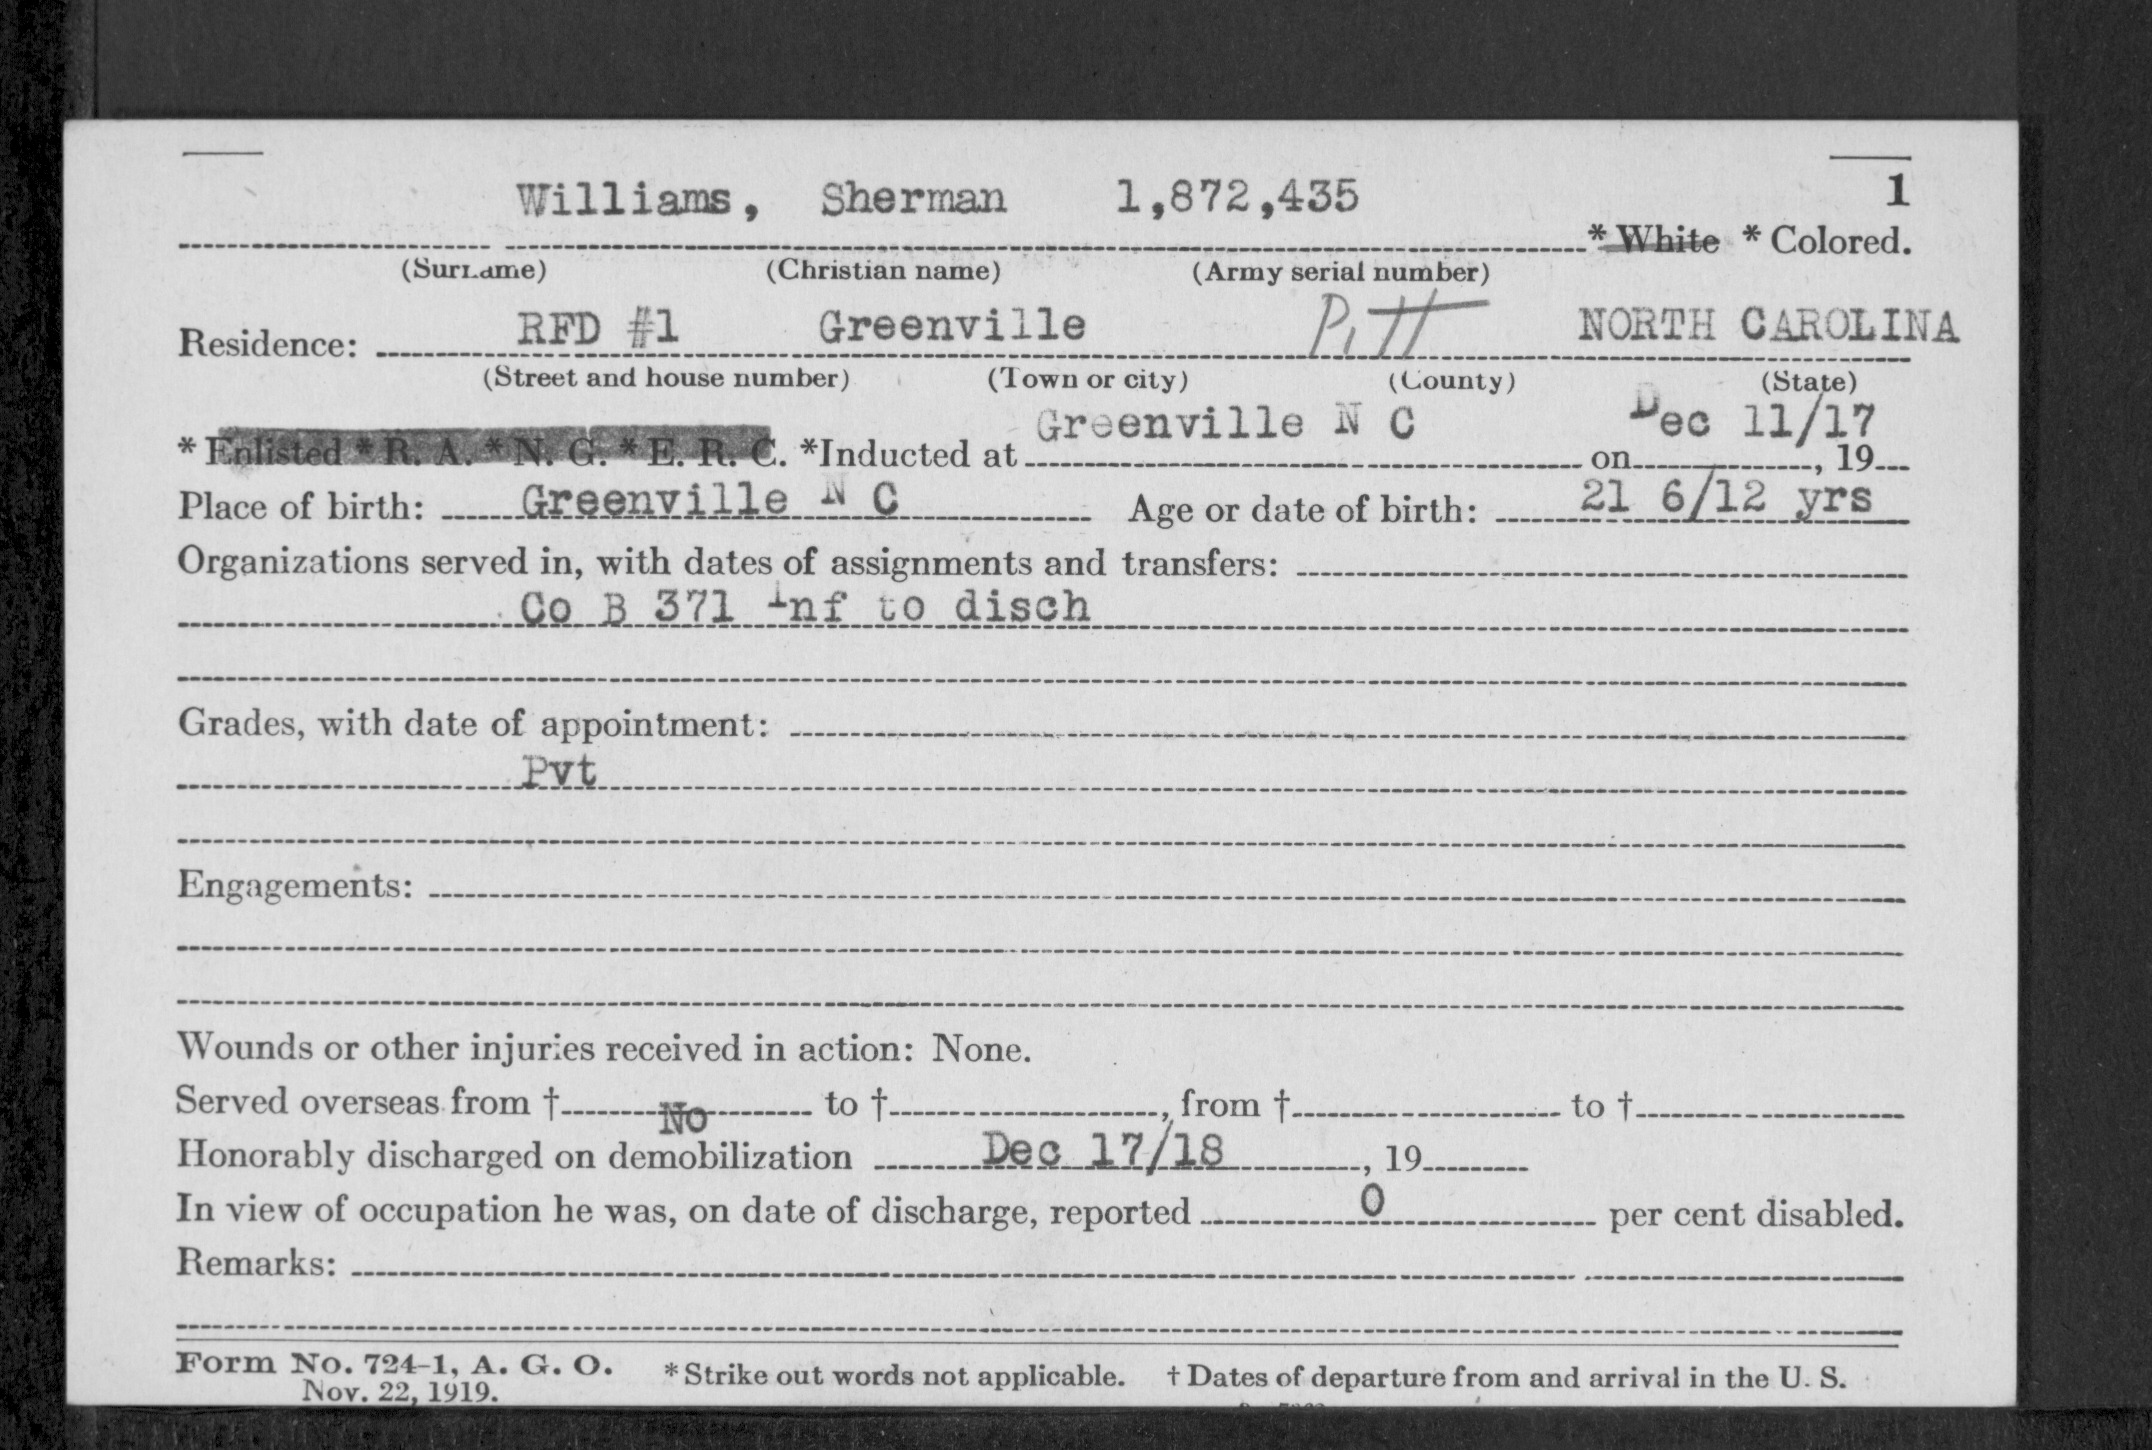 1
Williams, Sherman 1,872,435
* White * Colored.
(Surname) (Christian name) (Army serial number)
Residence: RFD #1 Greenville Pitt NORTH CAROLINA
(Street and house number) (Town or city) (County) (State)
* Enlisted * R. A. * N. G. * E. R. C. *Inducted at Greenville N C on Dec 11/17, 19
Place of birth: Greenville N C Age or date of birth: 21 6/12 yrs
Organizations served in, with dates of assignments and transfers:
Co B 371 Inf to disch
Grades, with date of appointment:
Pvt
Engagements:
Wounds or other injuries received in action: None.
Served overseas from † No to †, from † to †
Honorably discharged on demobilization Dec 17/18, 19
In view of occupation he was, on date of discharge, reported 0 per cent disabled.
Remarks:
Form No. 724-1, A. G. O. * Strike out words not applicable. † Dates of departure from and arrival in the U. S.
Nov. 22, 1919.